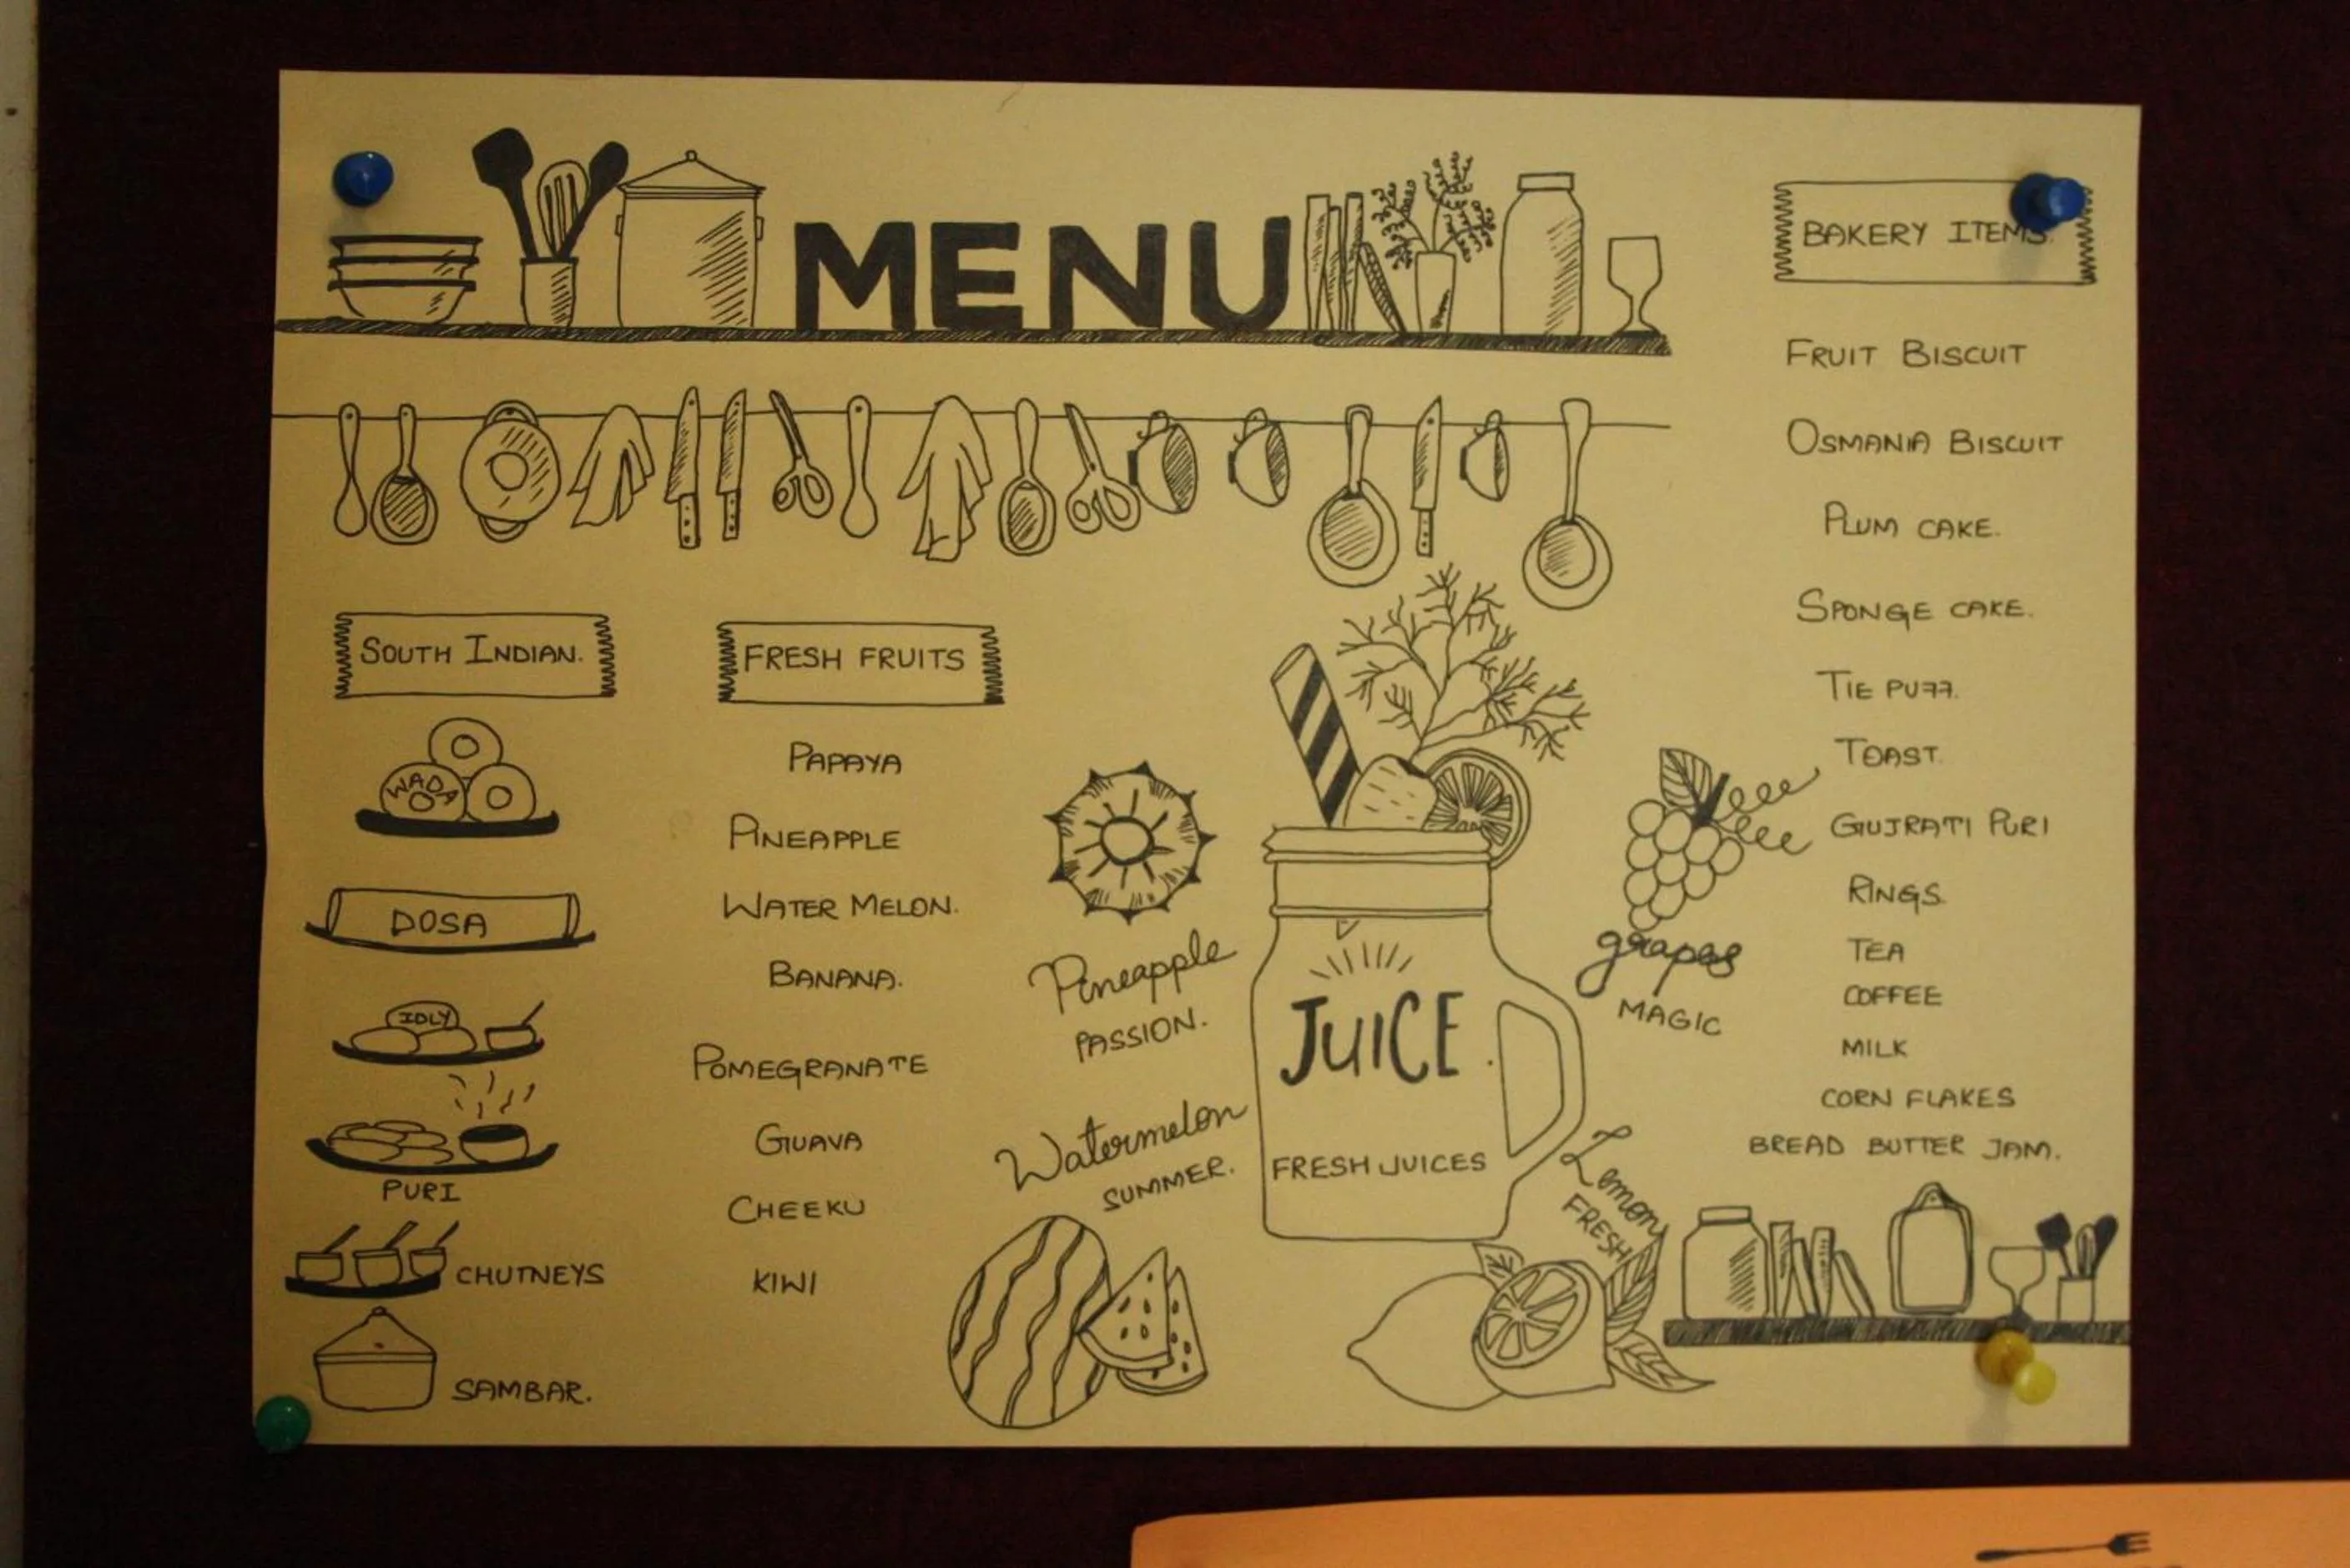 MENU
SOUTH INDIAN.
WADA
DOSA
IDLY
PURI
CHUTNEYS
SAMBAR.
FRESH FRUITS
PAPAYA
PINEAPPLE
WATER MELON.
BANANA.
POMEGRANATE
GUAVA
CHEEKU
KIWI
Pineapple
PASSION.
Watermelon
SUMMER.
JUICE
FRESH JUICES
grapes
MAGIC
Lemon
FRESH
BAKERY ITEMS.
FRUIT BISCUIT
OSMANIA BISCUIT
PLUM CAKE.
SPONGE CAKE.
TIE PUFF.
TOAST.
GUJRATI PURI
RINGS.
TEA
COFFEE
MILK
CORN FLAKES
BREAD BUTTER JAM.